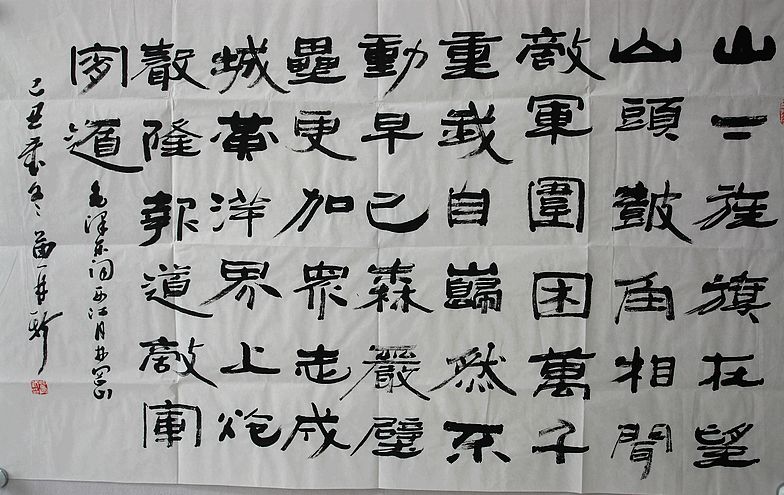 山下旌旗在望
山頭鼓角相聞
敵軍圍困萬千
重我自巋然不
動早已森嚴壁
壘更加衆志成
城黄洋界上炮
聲隆報道敵軍
宵遁
毛澤東詞西江月井岡山
己丑歲冬苗再新